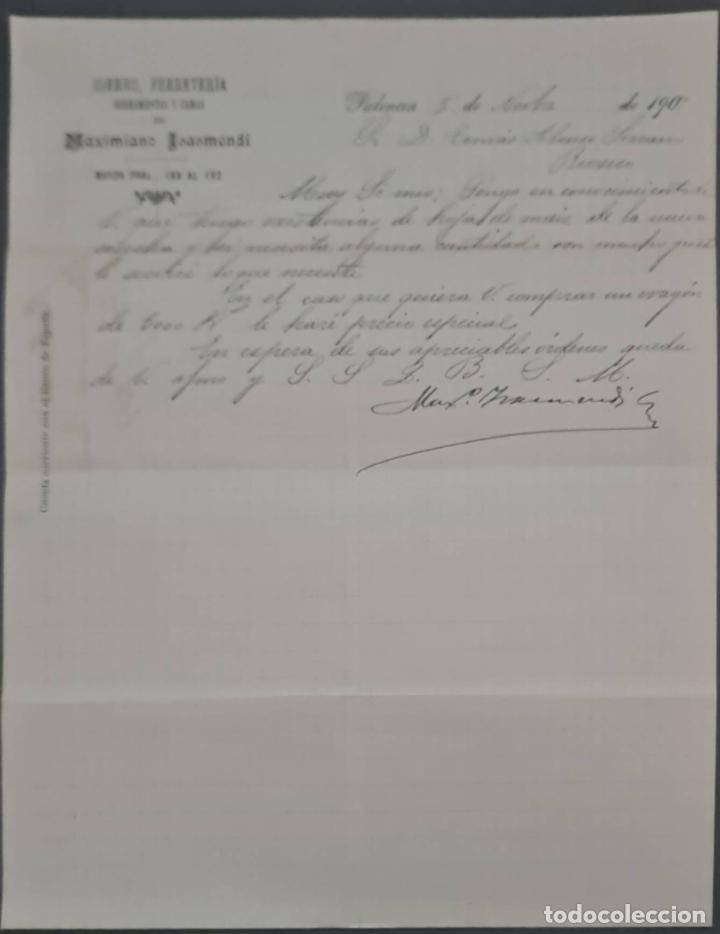 HIERRO, FERRETERÍA
DE
Maximiano Isasmendi
MAYOR PRAL., 189 AL 192
Palencia 5 de Novbre de 190
Sr. D. Tomás Alonso
Rioseco
Muy Sr. mio: Pongo en conocimiento de
V. que tengo existencias de hoja de maiz de la nueva
cosecha y por si necesita alguna cantidad, con mucho gusto
le serviré lo que necesite.
En el caso que quiera V. comprar un wagón
de 5000 K le haré precio especial.
En espera de sus apreciables órdenes queda
de V. afmo y S. S. Q. B. S. M.
Maxo. Isasmendi
Cuenta corriente con el Banco de España.
todocoleccion
todocoleccion.net